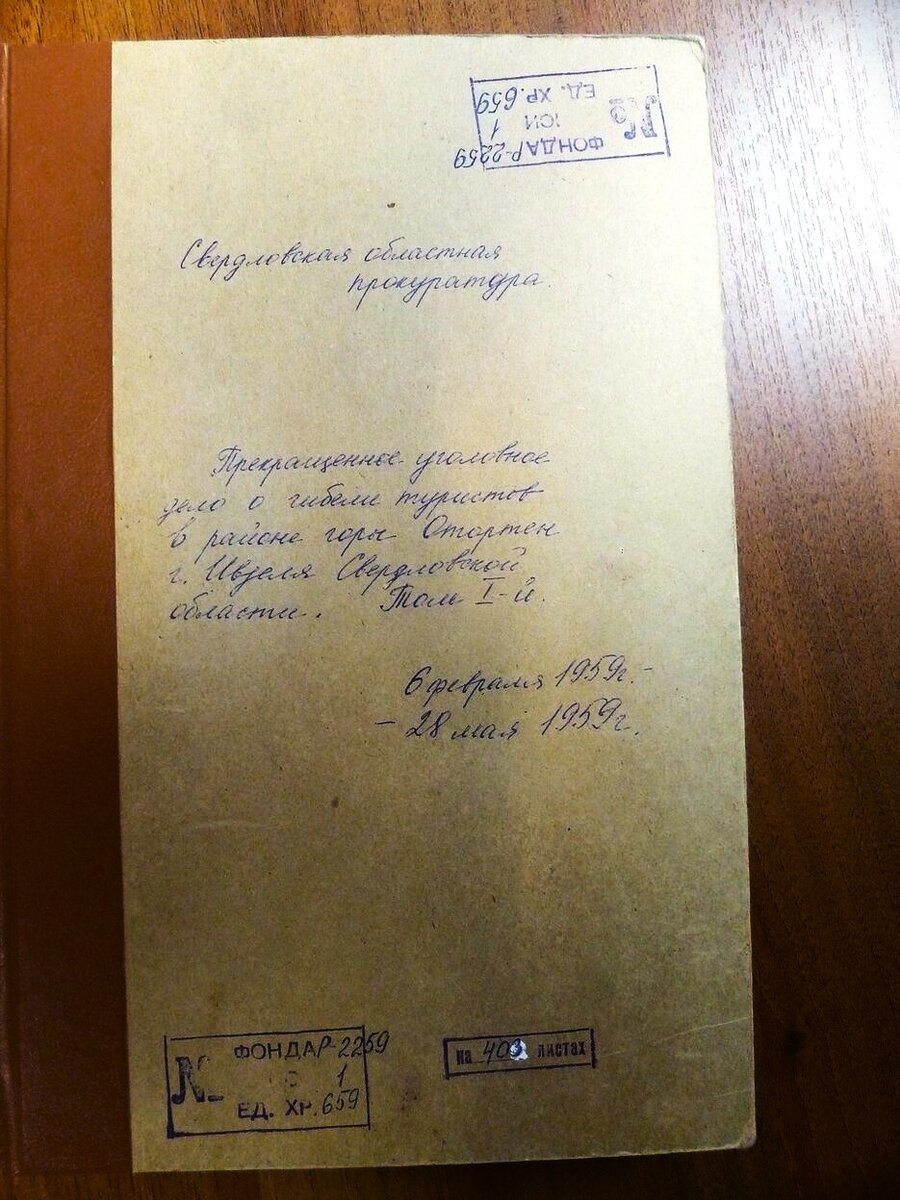 № ФОНДА Р-2259
1
ЕД. ХР. 659
Свердловская областная
прокуратура.
Прекращенное уголовное
дело о гибели туристов
в районе горы Отортен
г. Ивделя Свердловской
области. Том I-й.
6 февраля 1959г. -
- 28 мая 1959г.
№ ФОНДА Р-2259
1
ЕД. ХР. 659
на листах